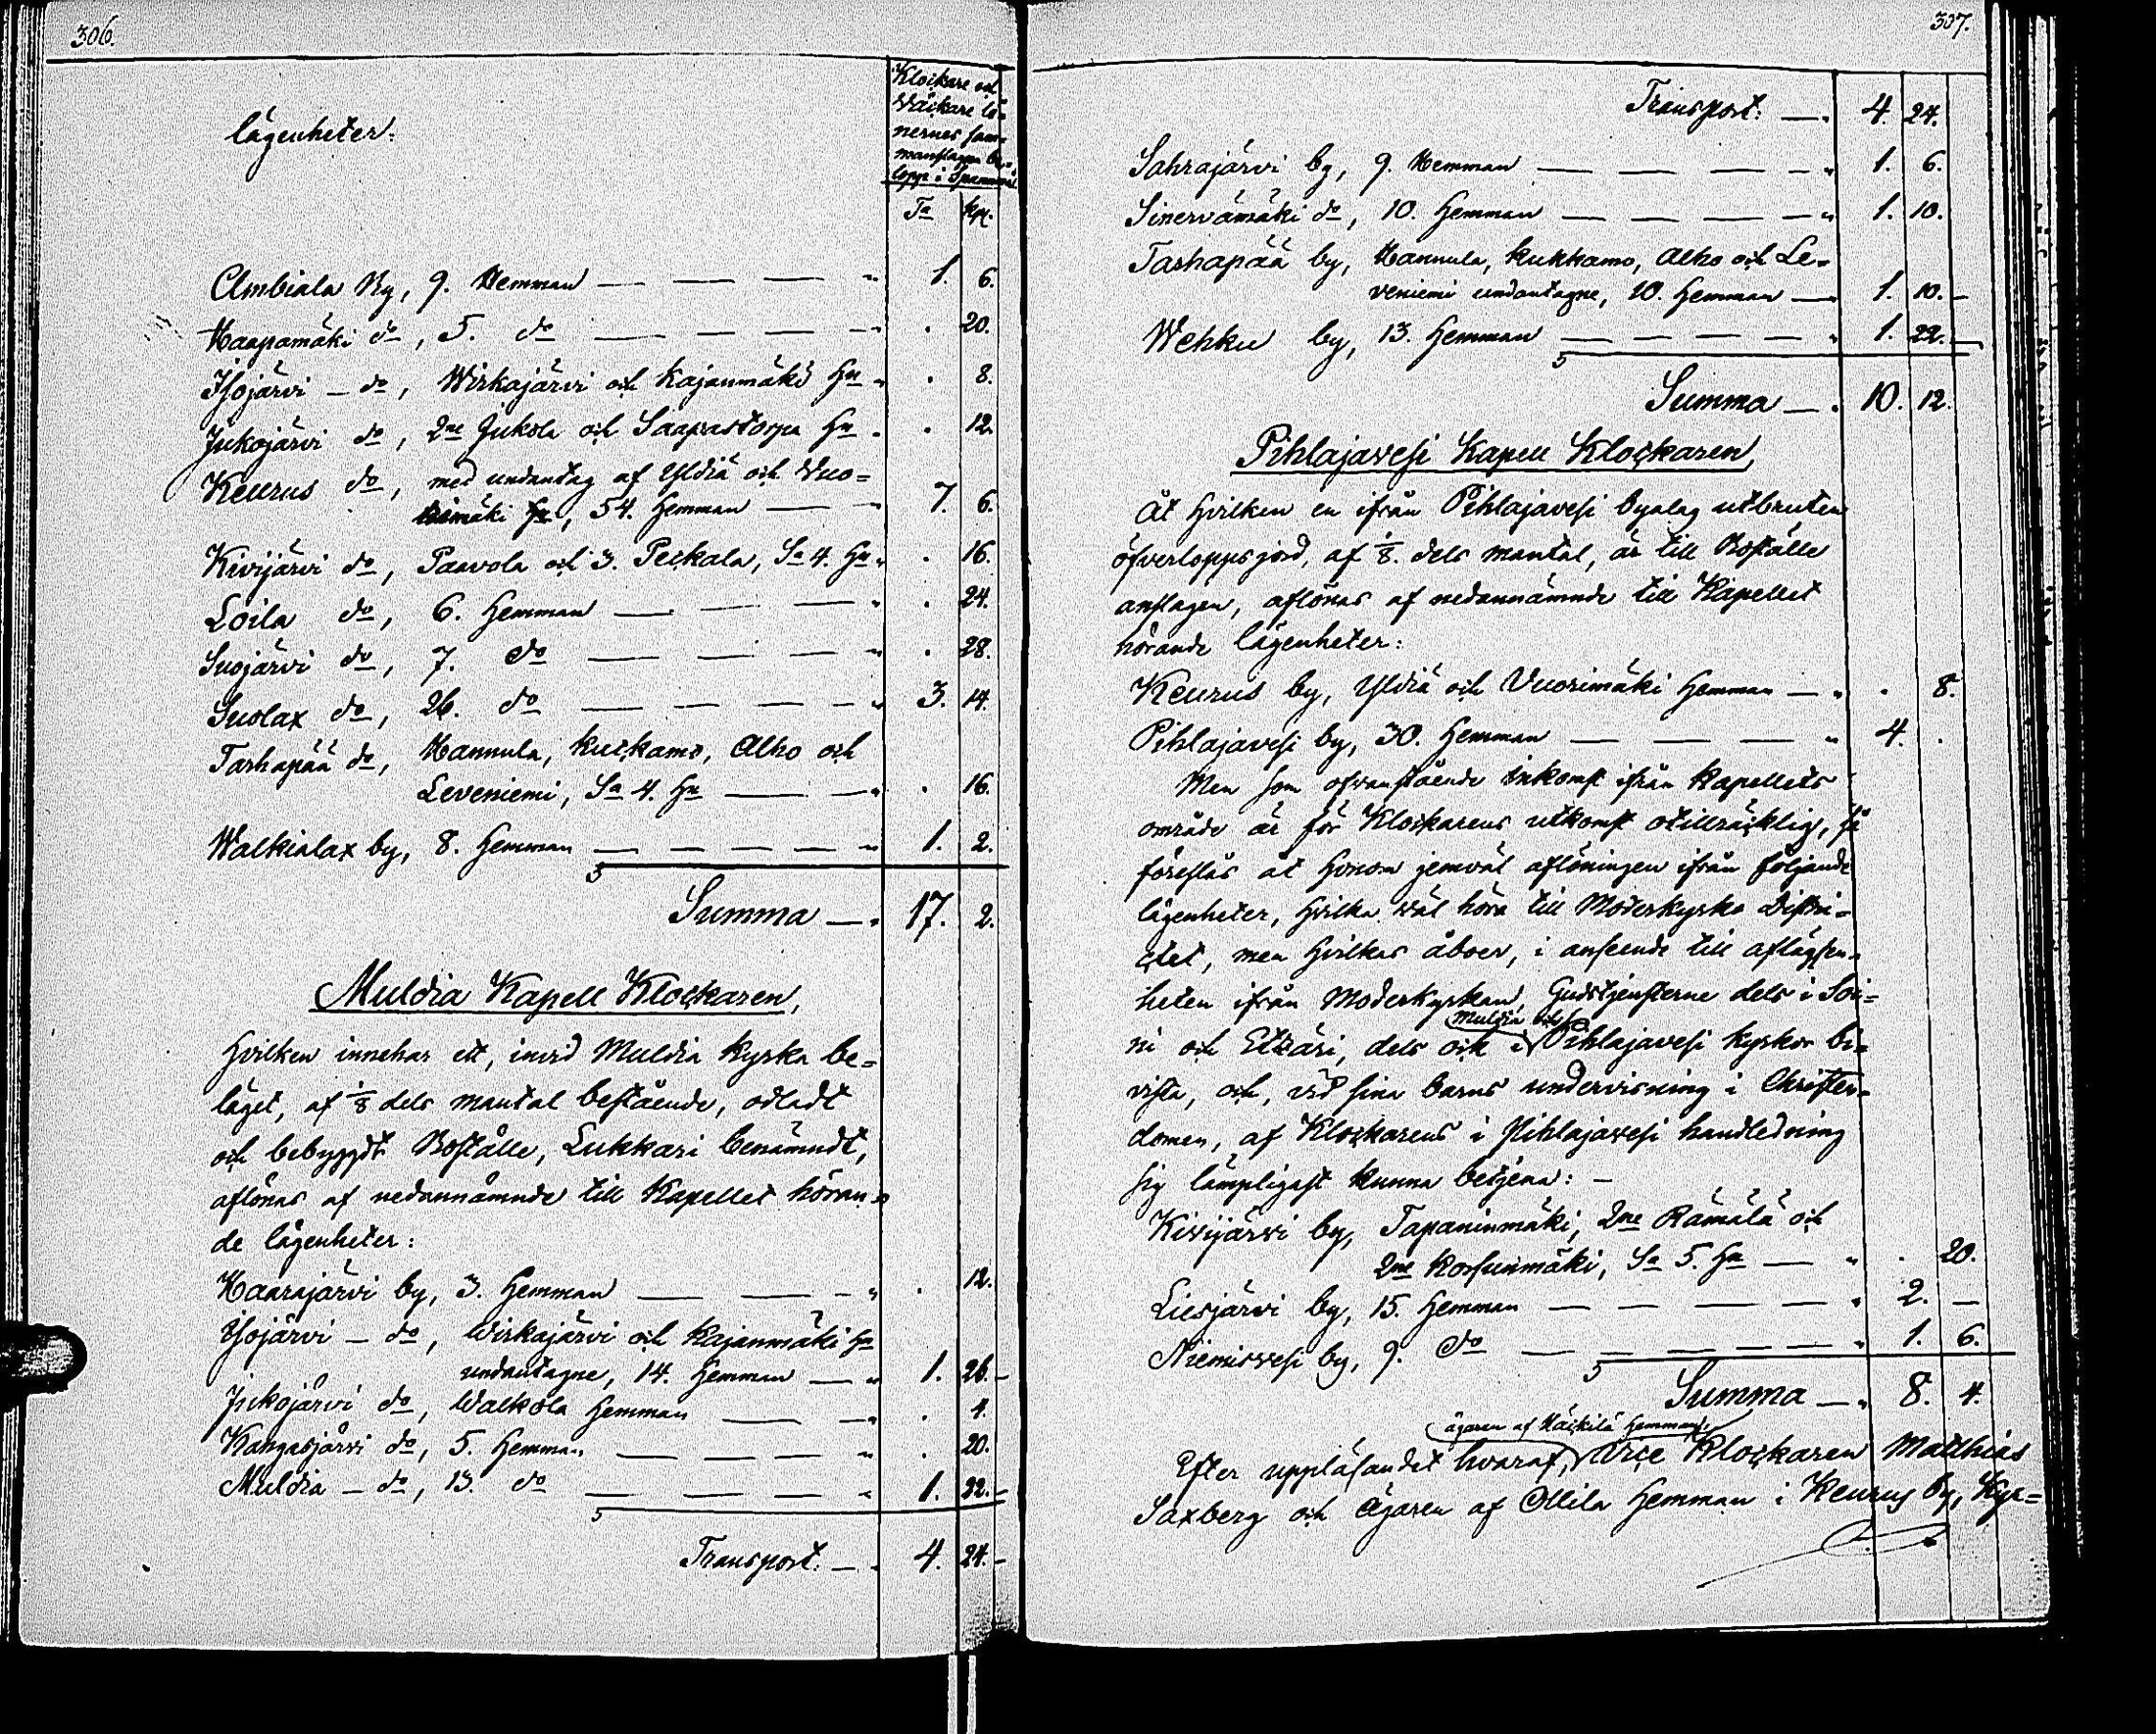 306.
Klockare och
Wäckare lö-
nernes sam-
manslagna be-
lopp i Spannmål
lägenheter:
Ta kpr.
Ambiala By, 9. Hemman — — — — " 1. 6.
Haapamäki do, 5. do — — — — " . 20.
Isojärvi — do, Wirkajärvi och Kajanmäki Hn " . 8.
Jukojärvi do, 2ne Jukola och Saaprastorpa Hn . . 12.
Keurus do, med undantag af Yldiä och Wuo-
rimäki Hn, 54. Hemman — — " 7. 6.
Kivijärvi do, Paavola och 3. Peckala, Sa 4. Hn " . 16.
Loila do, 6. Hemman — — — " . 24.
Suojärvi do, 7. do — — — — " . 28.
Suolax do, 26. do — — — — — " 3. 14.
Tarhapää do, Hannula, Kuckamo, Alho och
Leveniemi, Sa 4. Hn — — " . 16.
Walkialax by, 8. Hemman — — — — — " 1. 2.
Summa — . 17. 2.
Muldia Kapell Klockaren,
Hvilken innehar ett, invid Muldia Kyrka be-
läget, af 1/8 dels mantal bestående, odladt
och bebyggdt Boställe, Lukkari benämndt,
aflönas af nedannämnde till Kapellet höran-
de lägenheter:
Haarajärvi by, 3. Hemman — — — " . 12.
Isojärvi — do, Wirkajärvi och Kajanmäki Hn
undantagne, 14. Hemman — " 1. 26. —
Jukojärvi do, Walkola Hemman — — " . 4.
Kangasjärvi do, 5. Hemman — — — " . 20.
Muldia — do, 13. do — — — — " 1. 22. —
Transport: — . 4. 24. —
307.
Transport: — . 4. 24.
Sahrajärvi by, 9. Hemman — — — — " 1. 6.
Sinervämäki do, 10. Hemman — — — — " 1. 10.
Tarhapää by, Hannula, Kukkamo, Alho och Le-
veniemi undantagne, 10. Hemman — " 1. 10. —
Wehku by, 13. Hemman — — — — — " 1. 22. —
Summa — . 10. 12.
Pihlajavesi Kapell Klockaren,
Åt Hvilken en ifrån Pihlajavesi byalag utbruten
öfverloppsjord, af 1/8. dels mantal, är till Boställe
anslagen, aflönas af nedannämnde till Kapellet
hörande lägenheter:
Keurus by, Yldiä och Vuorimäki Hemman — " . 8.
Pihlajavesi by, 30. Hemman — — — " 4. .
Men som ofvanstående inkomst ifrån Kapellets
område är för Klockarens utkomst otillräcklig, så
föreslås åt Honom jemväl aflöningen ifrån följande
lägenheter, Hvilka wäl höra till Moderkyrko Distri-
ctet, men Hvilkas åboer, i anseende till aflägsen-
heten ifrån Moderkyrkan, Gudstjensterne dels i Soi-
Muldia och
ni och Etzäri, dels ock i Pihlajavesi Kyrkor bi-
vista, och, vid sina barns undervisning i Christen-
domen, af Klockarens i Pihlajavesi handledning
sig lämpligast kunna betjena: —
Kivijärvi by, Tapaninmäki, 2ne Rämälä och
2ne Korsunmäki, Sa 5. Hn — " . 20.
Liesjärvi by, 15. Hemman — — — — — " 2. —
Niemisvesi by, 9. do — — — — — " 1. 6.
Summa — . 8. 4.
ägaren af Häckilä Hemman,
Efter uppläsandet hvaraf, Vice Klockaren Matthias
Saxberg och Ägaren af Ollila Hemman i Keurus by, Kyr-